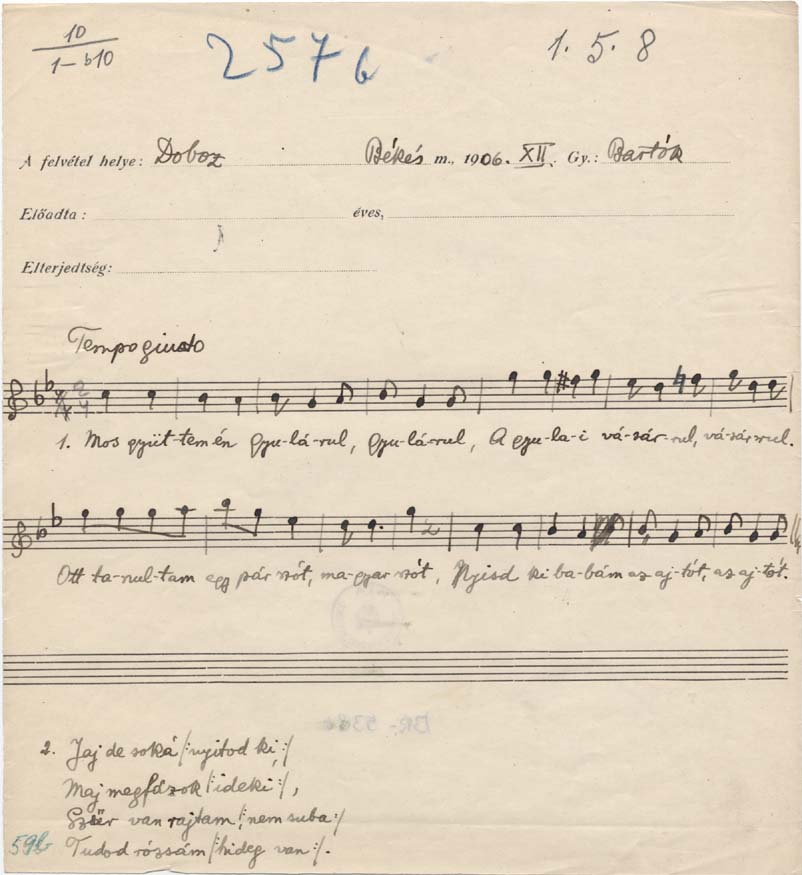 10
1-b10
257b
1. 5. 8
A felvétel helye: Doboz Békés m., 1906. XII. Gy.: Bartók
Előadta: éves,
Elterjedtség:
Tempo giusto
2
4
1. Mos gyüt-tem én Gyu-lá-rul, Gyu-lá-rul, A gyu-la-i vá-sár-rul, vá-sár-rul.
Ott ta-nul-tam egy pár szót, ma-gyar szót, Nyisd ki ba-bám az aj-tót, az aj-tót.
BR-
2. Jaj de soká /:nyitod ki:/
Maj megfázok /:ideki:/,
Szűr van rajtam /:nem suba:/
59b Tudod rózsám /:hideg van:/.